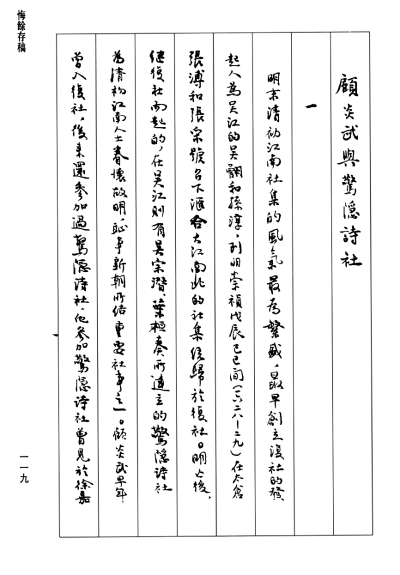 顧炎武與驚隱詩社
一
明末清初江南社集的風氣最為繁盛，最早創立復社的發
起人為吳江的吳翿和孫淳，到明崇禎戊辰己巳間（一六二八—二九）在太倉
張溥和張采號召下滙合大江南北的社集統歸於復社。明亡後，
繼復社而起的，在吳江則有吳宗潛、葉桓奏所建立的驚隱詩社
為清初江南人士眷懷故明，恥事新朝所結重要社事之一。顧炎武早年
曾入復社，後來還參加過驚隱詩社，他參加驚隱詩社曾見於徐嘉
悔餘存稿
一一九